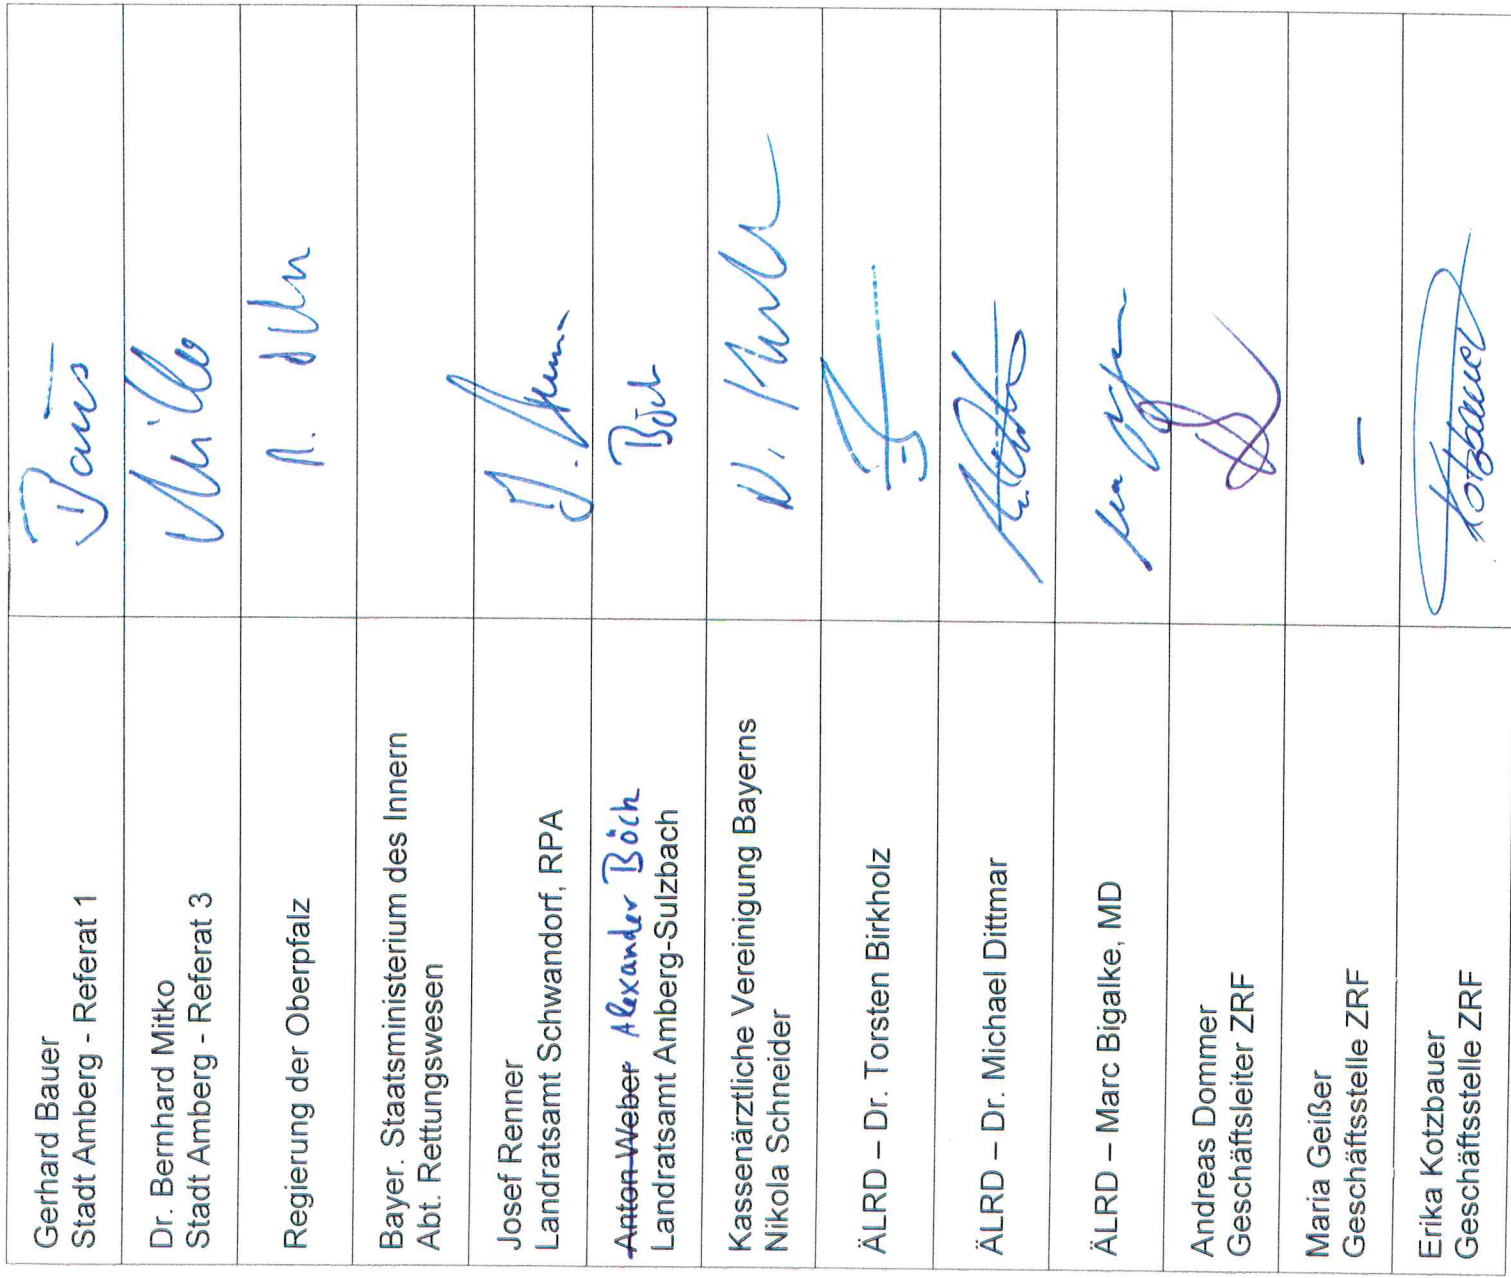 Gerhard Bauer
Stadt Amberg - Referat 1
Bauer
Dr. Bernhard Mitko
Stadt Amberg - Referat 3
Mitko
Regierung der Oberpfalz
Bayer. Staatsministerium des Innern
Abt. Rettungswesen
Josef Renner
Landratsamt Schwandorf, RPA
Anton Weber Alexander Böck
Landratsamt Amberg-Sulzbach
Böck
Kassenärztliche Vereinigung Bayerns
Nikola Schneider
ÄLRD – Dr. Torsten Birkholz
ÄLRD – Dr. Michael Dittmar
ÄLRD – Marc Bigalke, MD
Andreas Dommer
Geschäftsleiter ZRF
Maria Geißer
Geschäftsstelle ZRF
–
Erika Kotzbauer
Geschäftsstelle ZRF
Kotzbauer